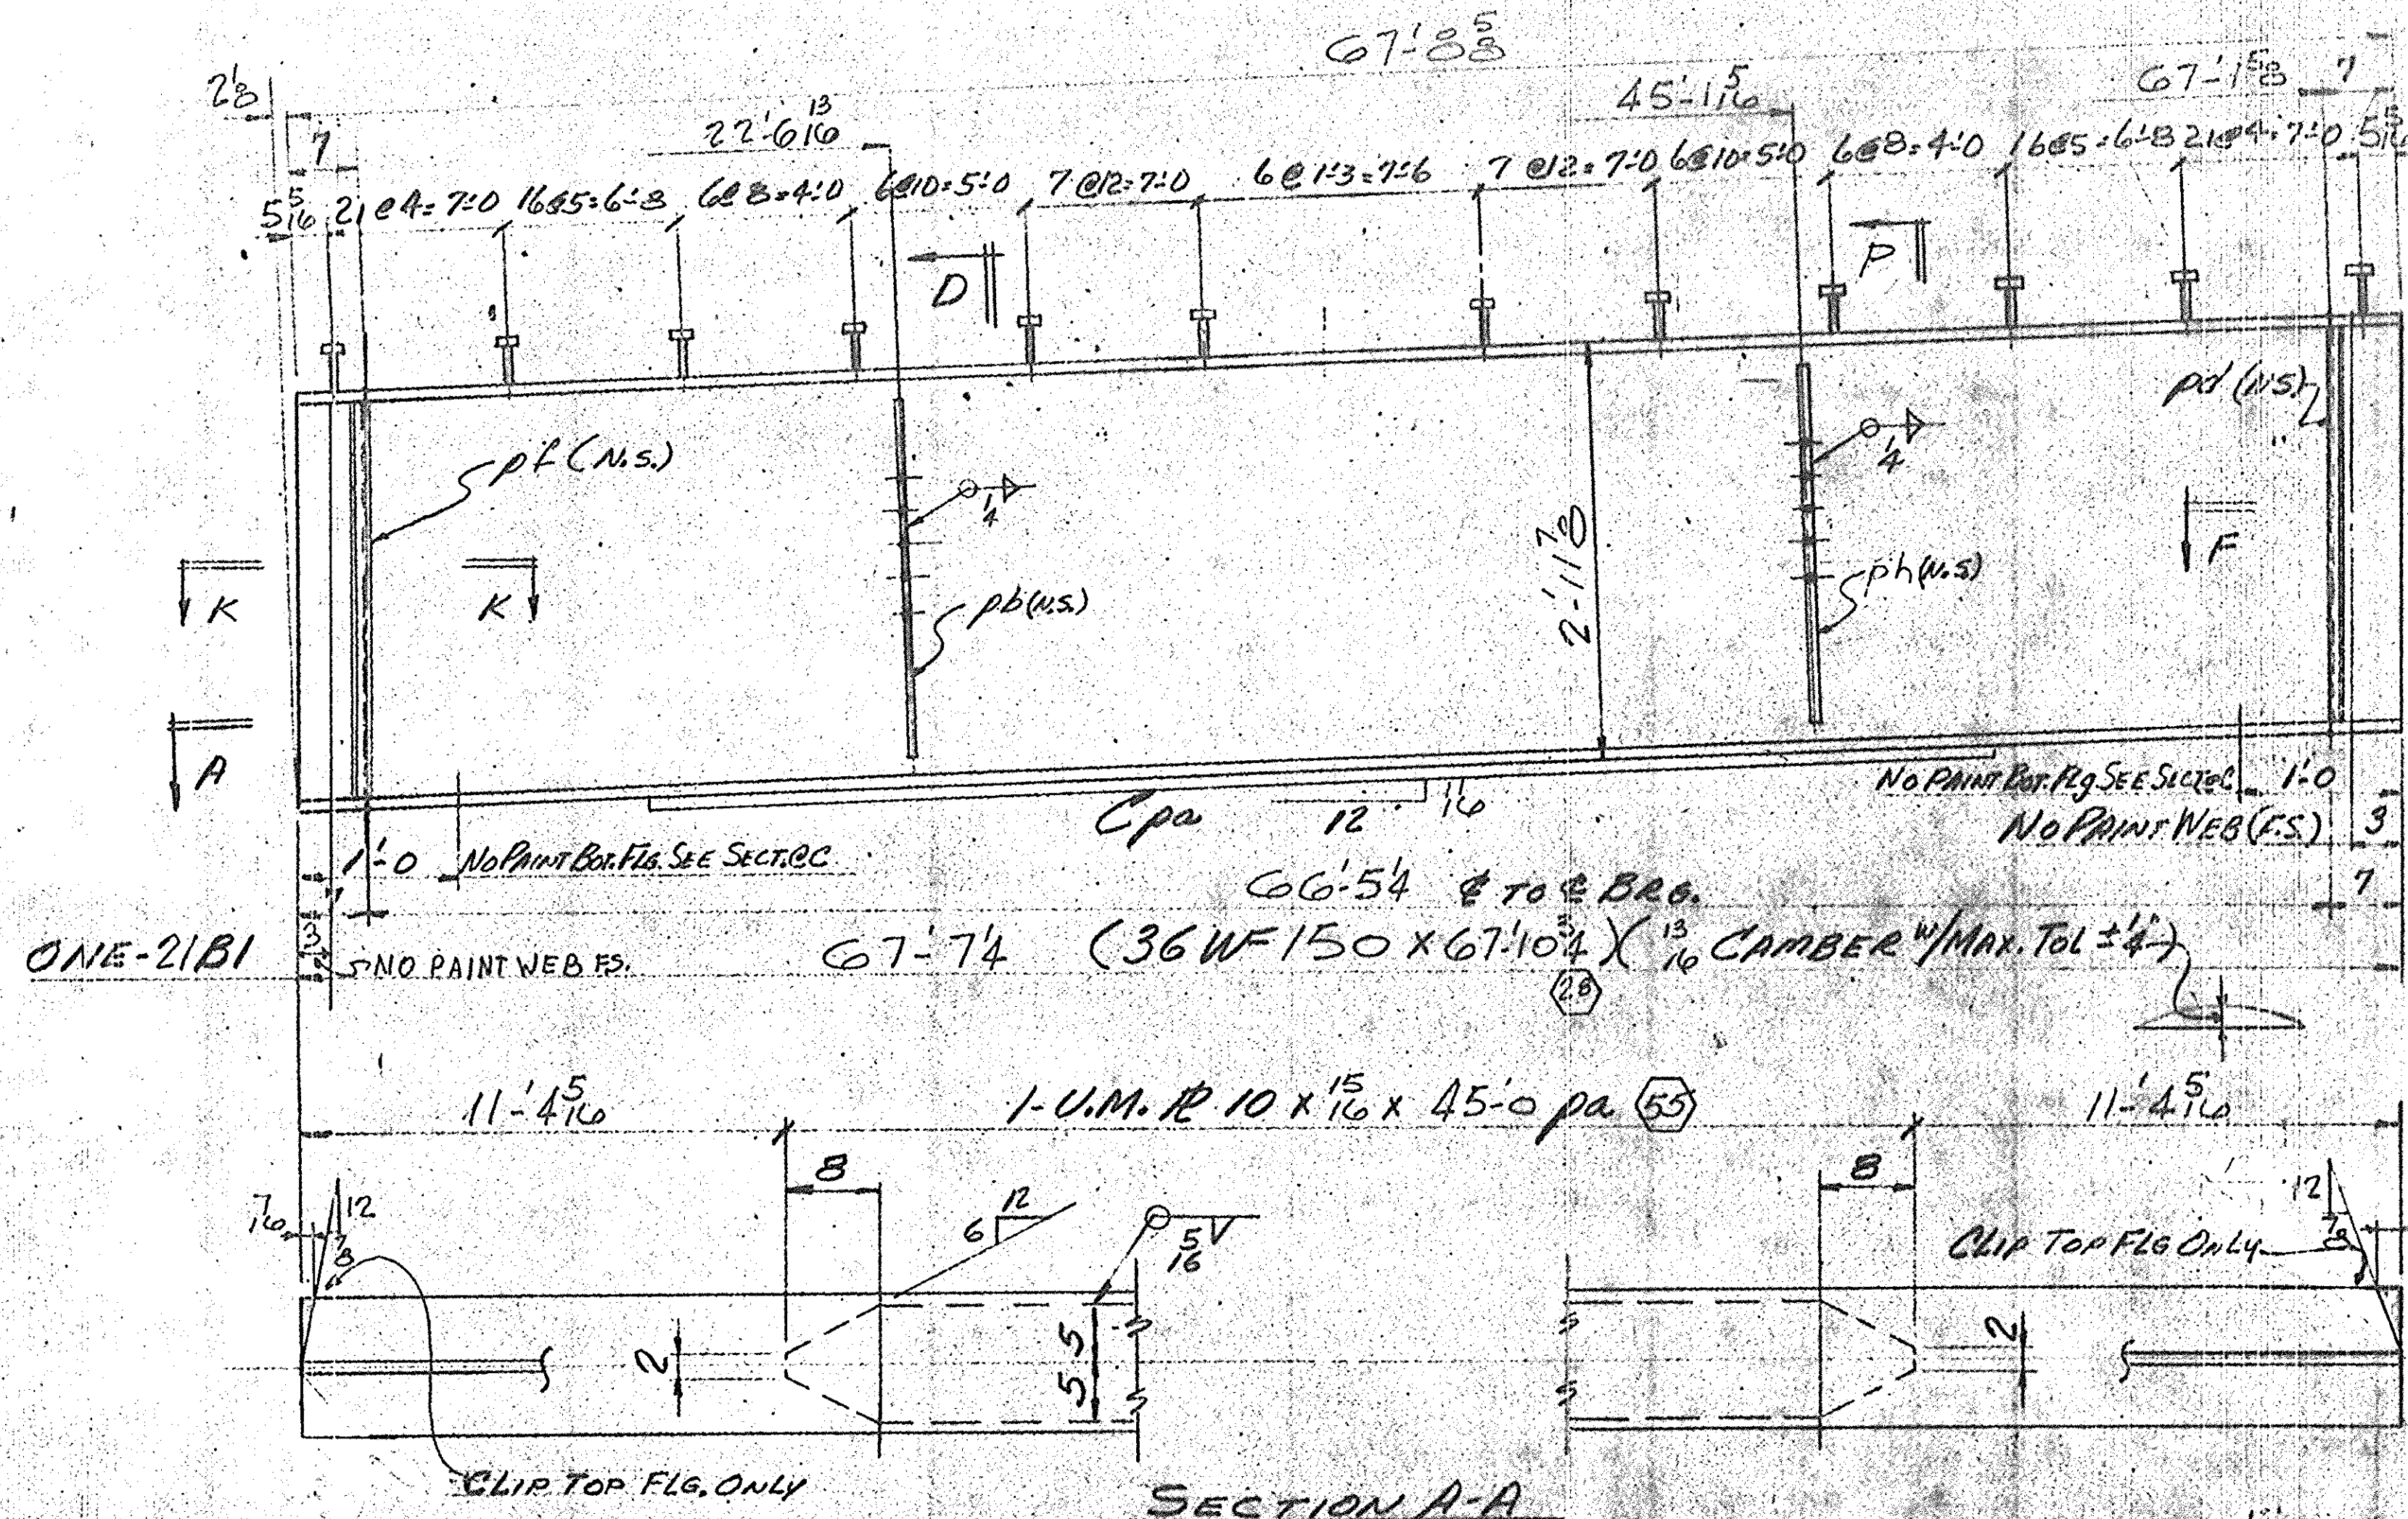 67'-8 5/8
2 1/8
7
22'-6 13/16
45'-1 5/16
67'-1 5/8
7
5 5/16 21@4=7'-0 16@5=6'-8 6@8=4'-0 6@10=5'-0 7@12=7'-0 6@1'-3=7'-6 7@12=7'-0 6@10=5'-0 6@8=4'-0 16@5=6'-8 21@4=7'-0
D
P
pf (N.S.)
1/4
pb (N.S.)
2'-11 7/8
1/4
ph (N.S)
pd (N.S.)
F
K
K
A
Cpa
12
1/16
NO PAINT BOT. FLG SEE SECT @ C
1'-0
NO PAINT WEB (F.S.)
3
1'-0
NO PAINT BOT. FLG. SEE SECT. @ C
66'-5 1/4 ℄ TO ℄ BRG.
7
7
ONE-21B1
3
NO PAINT WEB FS.
67'-7 1/4 (36 WF 150 x 67'-10 3/4) (13/16 CAMBER W/MAX. TOL ± 1/4)
28
11'-4 5/16
1-U.M. PL 10 x 15/16 x 45'-0 pa 55
11'-4 5/16
8
8
7/16
12
7/8
6
12
5/16
12
7/8
CLIP TOP FLG ONLY
2
5 5
2
CLIP TOP FLG. ONLY
SECTION A-A